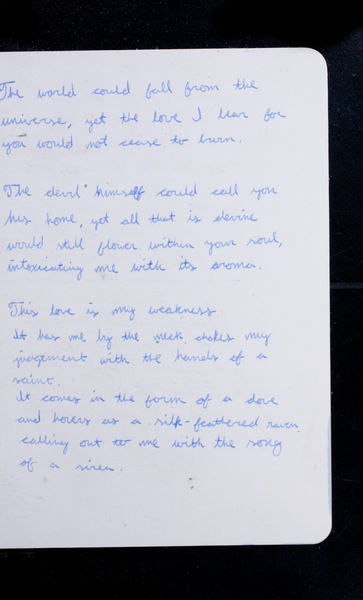 The world could fall from the
universe, yet the love I bear for
you would not cease to burn.
The devil himself could call you
his home, yet all that is devine
would still flower within your soul,
intoxicating me with its aroma.
This love is my weakness
It has me by the neck, chokes my
judgement with the hands of a
saint.
It comes in the form of a dove
and hovers as a silk-feathered raven,
calling out to me with the song
of a siren.